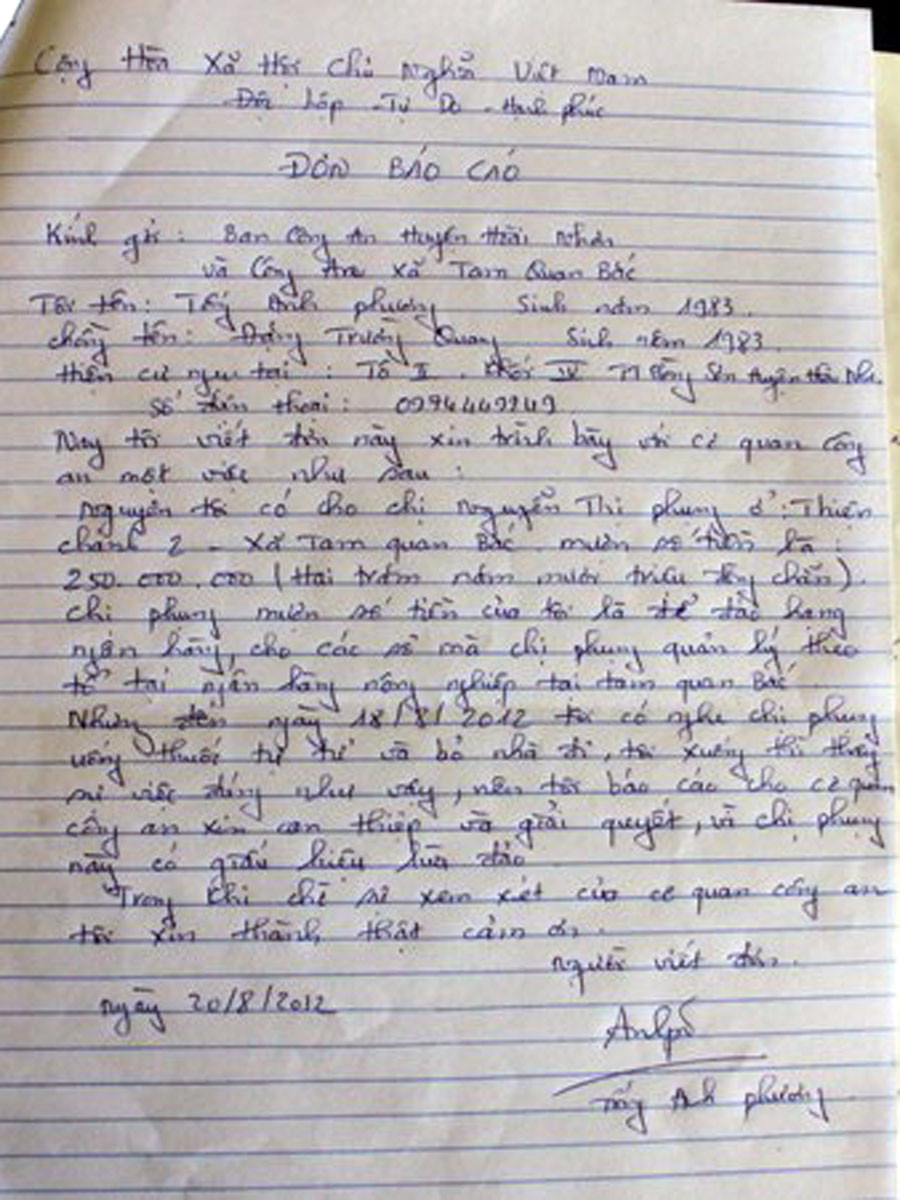 Cộng Hòa Xã Hội Chủ Nghĩa Việt Nam
Độc Lập - Tự Do - Hạnh phúc
ĐƠN BÁO CÁO
Kính gửi : Ban Công An Huyện Hoài Nhơn
và Công An Xã Tam Quan Bắc
Tôi tên : Tống Anh phương Sinh năm 1983.
chồng tên : Đặng Trường Quang Sinh năm 1983.
hiện cư ngụ tại : Tổ II . Khối IV TT Bồng Sơn huyện Hoài Nhơn
Số điện thoại : 0994449949
Nay tôi viết đơn này xin trình bày với cơ quan công
an một việc như sau :
Nguyên tôi có cho chị Nguyễn Thị phụng ở : Thiện
chánh 2 - Xã Tam quan Bắc mượn số tiền là :
250.000.000 (Hai trăm năm mươi triệu đồng chẵn).
chị phụng mượn số tiền của tôi là để đáo hạng
ngân hàng, cho các sổ mà chị phụng quản lý theo
tổ tại ngân hàng nông nghiệp tại tam quan Bắc
Nhưng đến ngày 18/8/2012 tôi có nghe chị phụng
uống thuốc tự tử và bỏ nhà đi, tôi xuống thì thấy
sự việc đúng như vậy, nên tôi báo cáo cho cơ quan
công an xin can thiệp và giải quyết, vì chị phụng
này có giấu hiệu lừa đảo
Trong khi chờ sự xem xét của cơ quan công an
tôi xin thành thật cảm ơn.
Người viết đơn.
ngày 20/8/2012
Tống Anh phương